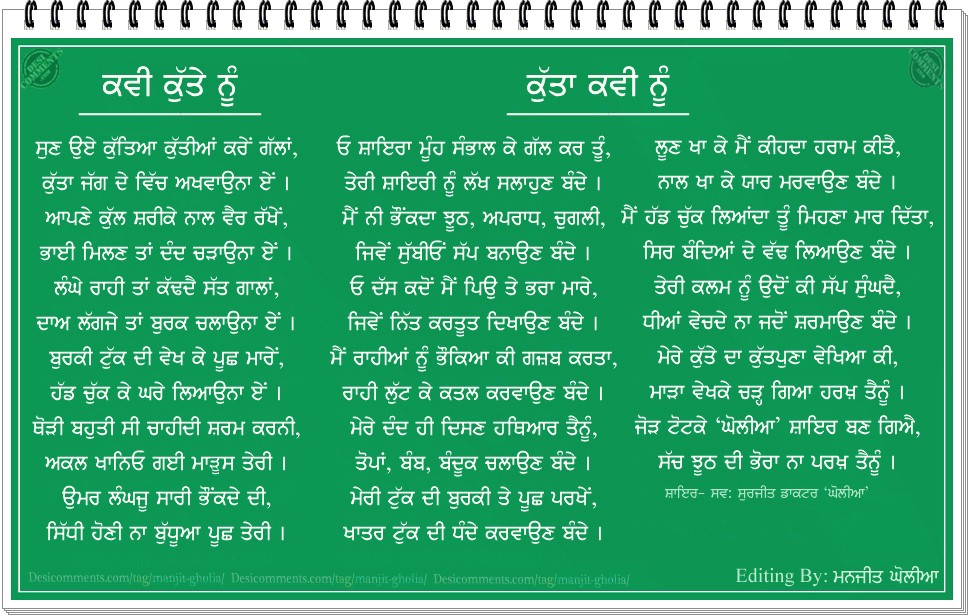 ਕਵੀ ਕੁੱਤੇ ਨੂੰ
ਸੁਣ ਉਏ ਕੁੱਤਿਆ ਕੁੱਤੀਆਂ ਕਰੇਂ ਗੱਲਾਂ,
ਕੁੱਤਾ ਜੱਗ ਦੇ ਵਿੱਚ ਅਖਵਾਉਨਾ ਏਂ ।
ਆਪਣੇ ਕੁੱਲ ਸ਼ਰੀਕੇ ਨਾਲ ਵੈਰ ਰੱਖੇਂ,
ਭਾਈ ਮਿਲਣ ਤਾਂ ਦੰਦ ਚੜਾਉਨਾ ਏਂ ।
ਲੰਘੇ ਰਾਹੀ ਤਾਂ ਕੱਢਦੈ ਸੱਤ ਗਾਲਾਂ,
ਦਾਅ ਲੱਗਜੇ ਤਾਂ ਬੁਰਕ ਚਲਾਉਨਾ ਏਂ ।
ਬੁਰਕੀ ਟੁੱਕ ਦੀ ਵੇਖ ਕੇ ਪੂਛ ਮਾਰੇਂ,
ਹੱਡ ਚੁੱਕ ਕੇ ਘਰੇ ਲਿਆਉਨਾ ਏਂ ।
ਥੋੜੀ ਬਹੁਤੀ ਸੀ ਚਾਹੀਦੀ ਸ਼ਰਮ ਕਰਨੀ,
ਅਕਲ ਖਾਨਿਓ ਗਈ ਮਾੜੂਸ ਤੇਰੀ ।
ਉਮਰ ਲੰਘਜੂ ਸਾਰੀ ਭੌਂਕਦੇ ਦੀ,
ਸਿੱਧੀ ਹੋਣੀ ਨਾ ਬੁੱਧੂਆ ਪੂਛ ਤੇਰੀ ।
ਕੁੱਤਾ ਕਵੀ ਨੂੰ
ਓ ਸ਼ਾਇਰਾ ਮੂੰਹ ਸੰਭਾਲ ਕੇ ਗੱਲ ਕਰ ਤੂੰ,
ਤੇਰੀ ਸ਼ਾਇਰੀ ਨੂੰ ਲੱਖ ਸਲਾਹੁਣ ਬੰਦੇ ।
ਮੈਂ ਨੀ ਭੌਂਕਦਾ ਝੂਠ, ਅਪਰਾਧ, ਚੁਗਲੀ,
ਜਿਵੇਂ ਸੂੱਬੀਓਂ ਸੱਪ ਬਨਾਉਣ ਬੰਦੇ ।
ਓ ਦੱਸ ਕਦੋਂ ਮੈਂ ਪਿਉ ਤੇ ਭਰਾ ਮਾਰੇ,
ਜਿਵੇਂ ਨਿੱਤ ਕਰਤੂਤ ਦਿਖਾਉਣ ਬੰਦੇ ।
ਮੈਂ ਰਾਹੀਆਂ ਨੂੰ ਭੌਕਿਆ ਕੀ ਗਜ਼ਬ ਕਰਤਾ,
ਰਾਹੀ ਲੁੱਟ ਕੇ ਕਤਲ ਕਰਵਾਉਣ ਬੰਦੇ ।
ਮੇਰੇ ਦੰਦ ਹੀ ਦਿਸਣ ਹਥਿਆਰ ਤੈਨੂੰ,
ਤੋਪਾਂ, ਬੰਬ, ਬੰਦੂਕ ਚਲਾਉਣ ਬੰਦੇ ।
ਮੇਰੀ ਟੁੱਕ ਦੀ ਬੁਰਕੀ ਤੇ ਪੂਛ ਪਰਖੇਂ,
ਖਾਤਰ ਟੁੱਕ ਦੀ ਧੰਦੇ ਕਰਵਾਉਣ ਬੰਦੇ ।
ਲੂਣ ਖਾ ਕੇ ਮੈਂ ਕੀਹਦਾ ਹਰਾਮ ਕੀਤੈ,
ਨਾਲ ਖਾ ਕੇ ਯਾਰ ਮਰਵਾਉਣ ਬੰਦੇ ।
ਮੈਂ ਹੱਡ ਚੁੱਕ ਲਿਆਂਦਾ ਤੂੰ ਮਿਹਣਾ ਮਾਰ ਦਿੱਤਾ,
ਸਿਰ ਬੰਦਿਆਂ ਦੇ ਵੱਢ ਲਿਆਉਣ ਬੰਦੇ ।
ਤੇਰੀ ਕਲਮ ਨੂੰ ਉਦੋਂ ਕੀ ਸੱਪ ਸੁੰਘਦੈ,
ਧੀਆਂ ਵੇਚਦੇ ਨਾ ਜਦੋਂ ਸ਼ਰਮਾਉਣ ਬੰਦੇ ।
ਮੇਰੇ ਕੁੱਤੇ ਦਾ ਕੁੱਤਪੁਣਾ ਵੇਖਿਆ ਕੀ,
ਮਾੜਾ ਵੇਖਕੇ ਚੜ੍ਹ ਗਿਆ ਹਰਖ਼ ਤੈਨੂੰ ।
ਜੋੜ ਟੋਟਕੇ ‘ਘੋਲੀਆ’ ਸ਼ਾਇਰ ਬਣ ਗਿਐ,
ਸੱਚ ਝੂਠ ਦੀ ਭੋਰਾ ਨਾ ਪਰਖ਼ ਤੈਨੂੰ ।
ਸ਼ਾਇਰ- ਸਵ: ਸੁਰਜੀਤ ਡਾਕਟਰ ‘ਘੋਲੀਆ’
Desicomments.com/tag/manjit-gholia/ Desicomments.com/tag/manjit-gholia/ Desicomments.com/tag/manjit-gholia/
Editing By: ਮਨਜੀਤ ਘੋਲੀਆ
DESI COMMENTS
DESI COMMENTS